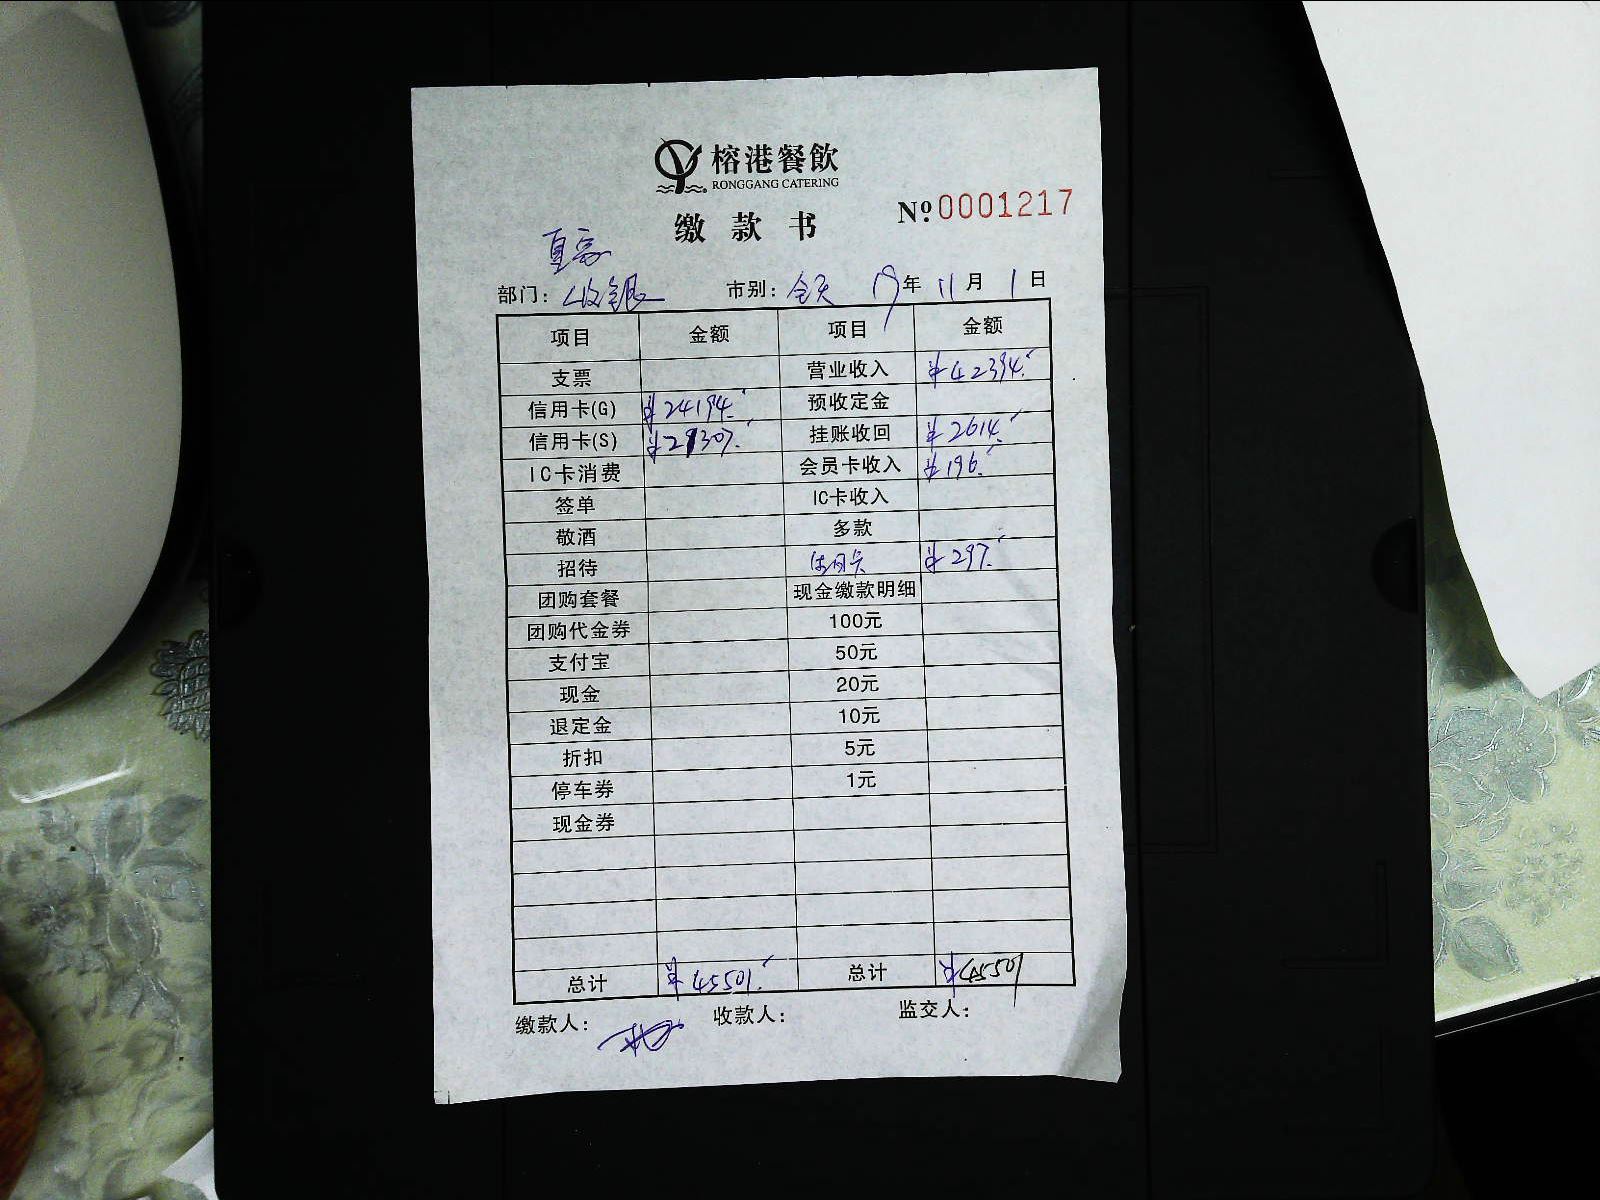 榕港餐飲
RONGGANG CATERING
缴款书 №0001217
部门：收银 市别：全天 19年11月1日
项目 金额 项目 金额
支票 营业收入 ¥42394.
信用卡(G) ¥24194. 预收定金
信用卡(S) ¥21307. 挂账收回 ¥2614.
IC卡消费 会员卡收入 ¥196.
签单 IC卡收入
敬酒 多款
招待 信用卡 ¥297.
团购套餐 现金缴款明细
团购代金券 100元
支付宝 50元
现金 20元
退定金 10元
折扣 5元
停车券 1元
现金券
总计 ¥45501. 总计 ¥45501
缴款人： 收款人： 监交人：